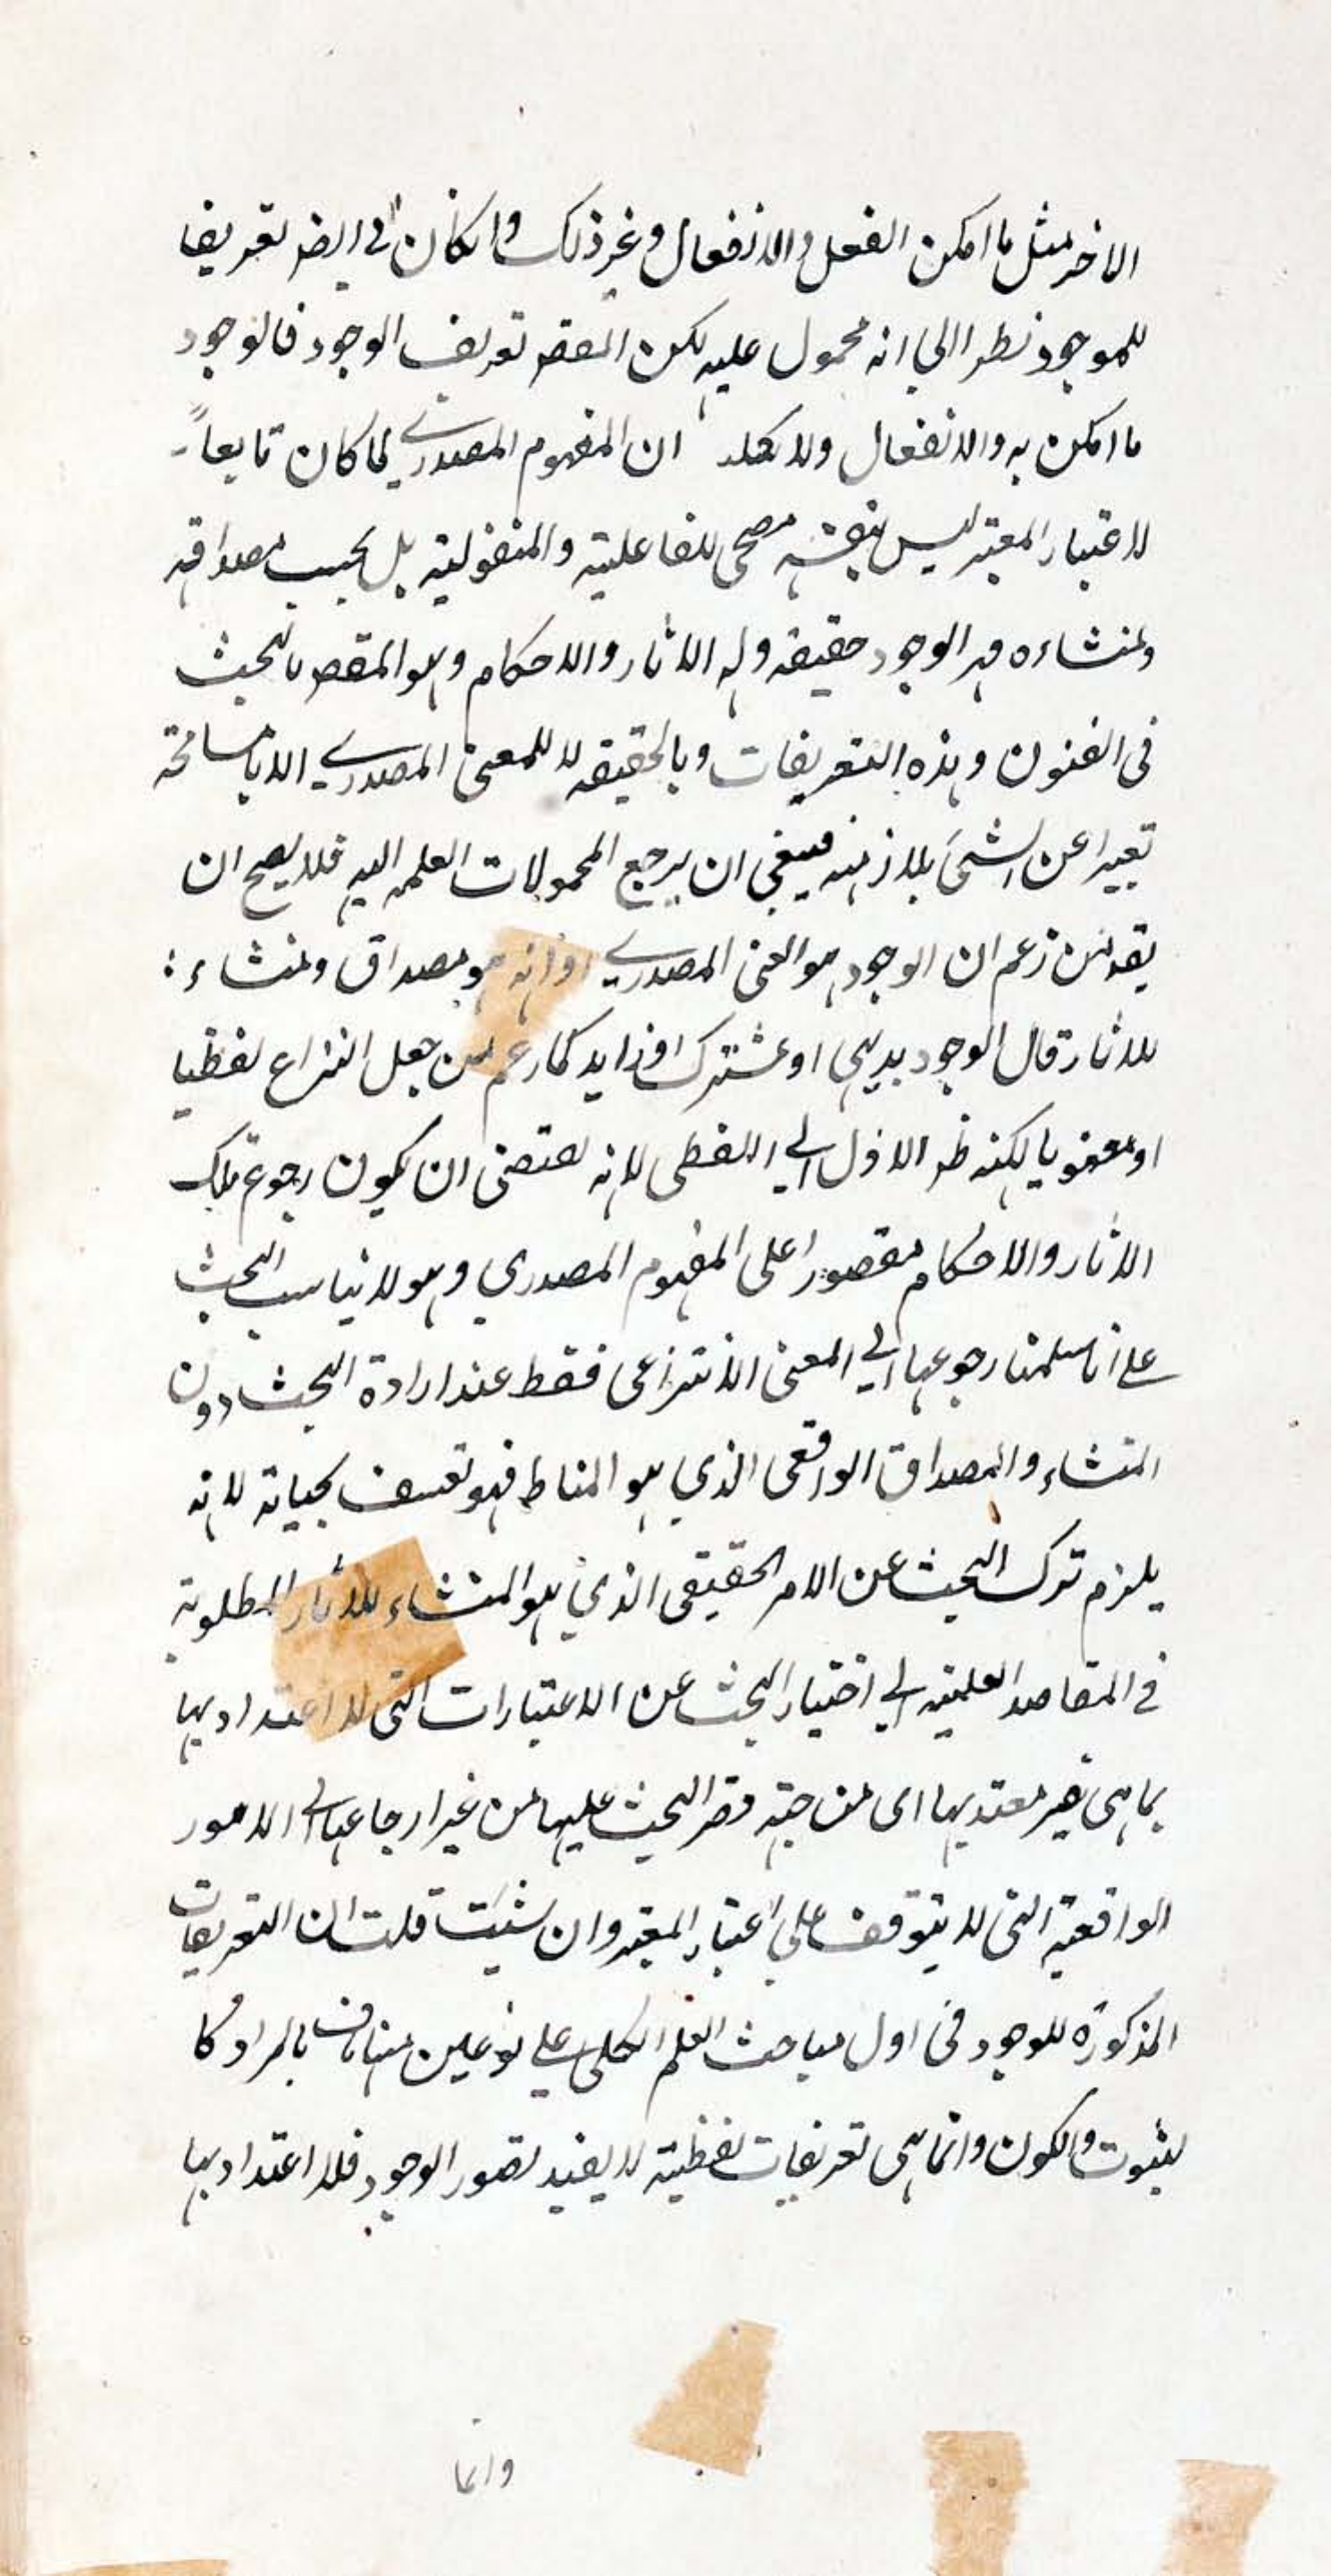 الاخر مثل ما امكن الفعل والانفعال وغير ذلك وانكان في ايض تعريفا
للموجود نظرا الى انه محمول عليه لكن المقص تعريف الوجود فالوجود
ما امكن به والانفعال ولا ان المفهوم المصدري لما كان تابعاً
لاعتبار المعتبر ليس بنفسه مصحى للفاعلية والمنفعولية بل بحسب مصداقه
ومنشاءه هو الوجود حقيقة وله الاثار والاحكام وهو المقص بالبحث
فى الفنون وهذه التعريفات وبالحقيقه لا للمعنى المصدري الا بالمسامحة
تعبيرا عن الشئ بلازمه فينبغى ان يرجع المحمولات العلميه اليه فلا يصح ان
يقد من زعم ان الوجود هو المعنى المصدري او انه هو مصداق ومنشاء
للاثار قال الوجود بديهى او مشترك او زايد كما زعم من جعل النزاع لفظيا
او معنويا لكنه ظر الاول الي اللفظى لانه يقتضى ان يكون رجوع تلك
الاثار والاحكام مقصورا على المفهوم المصدري وهو لا يناسب البحث
على انا سلمنا رجوعها الي المعنى الانتزاعى فقط عند ارادة البحث دون
المنشاء والمصداق الواقعى الذي هو المناط فهو تعسف بحياته لانه
يلزم ترك البحث عن الامر الحقيقى الذي هو المنشاء للاثار المطلوبة
في المقاصد العلميه الي اختيار البحث عن الاعتبارات التى لا اعتداد بها
بما هى غير معتد بها اى من جهة قصر البحث عليها من غير ارجاعها الى الامور
الواقعية التى لا يتوقف على اعتبار المعتبر وان شئت قلت ان التعريفات
المذكورة للوجود فى اول مباحث العلم الكلى على نوعين بالمراد كا
لثبوت والكون وانما هى تعريفات لفظية لا يفيد تصور الوجود فلا اعتداد بها
وانما